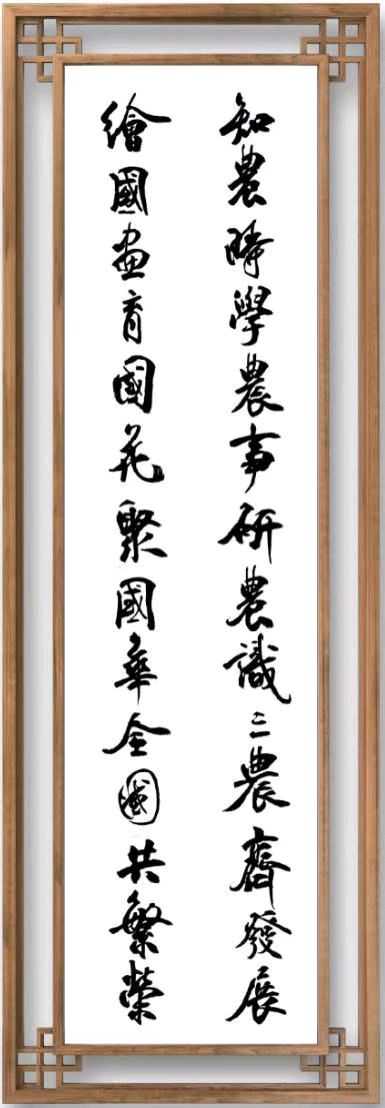 知農時學農事研農識三農齊發展
繪國畫育國花聚國華全國共繁榮